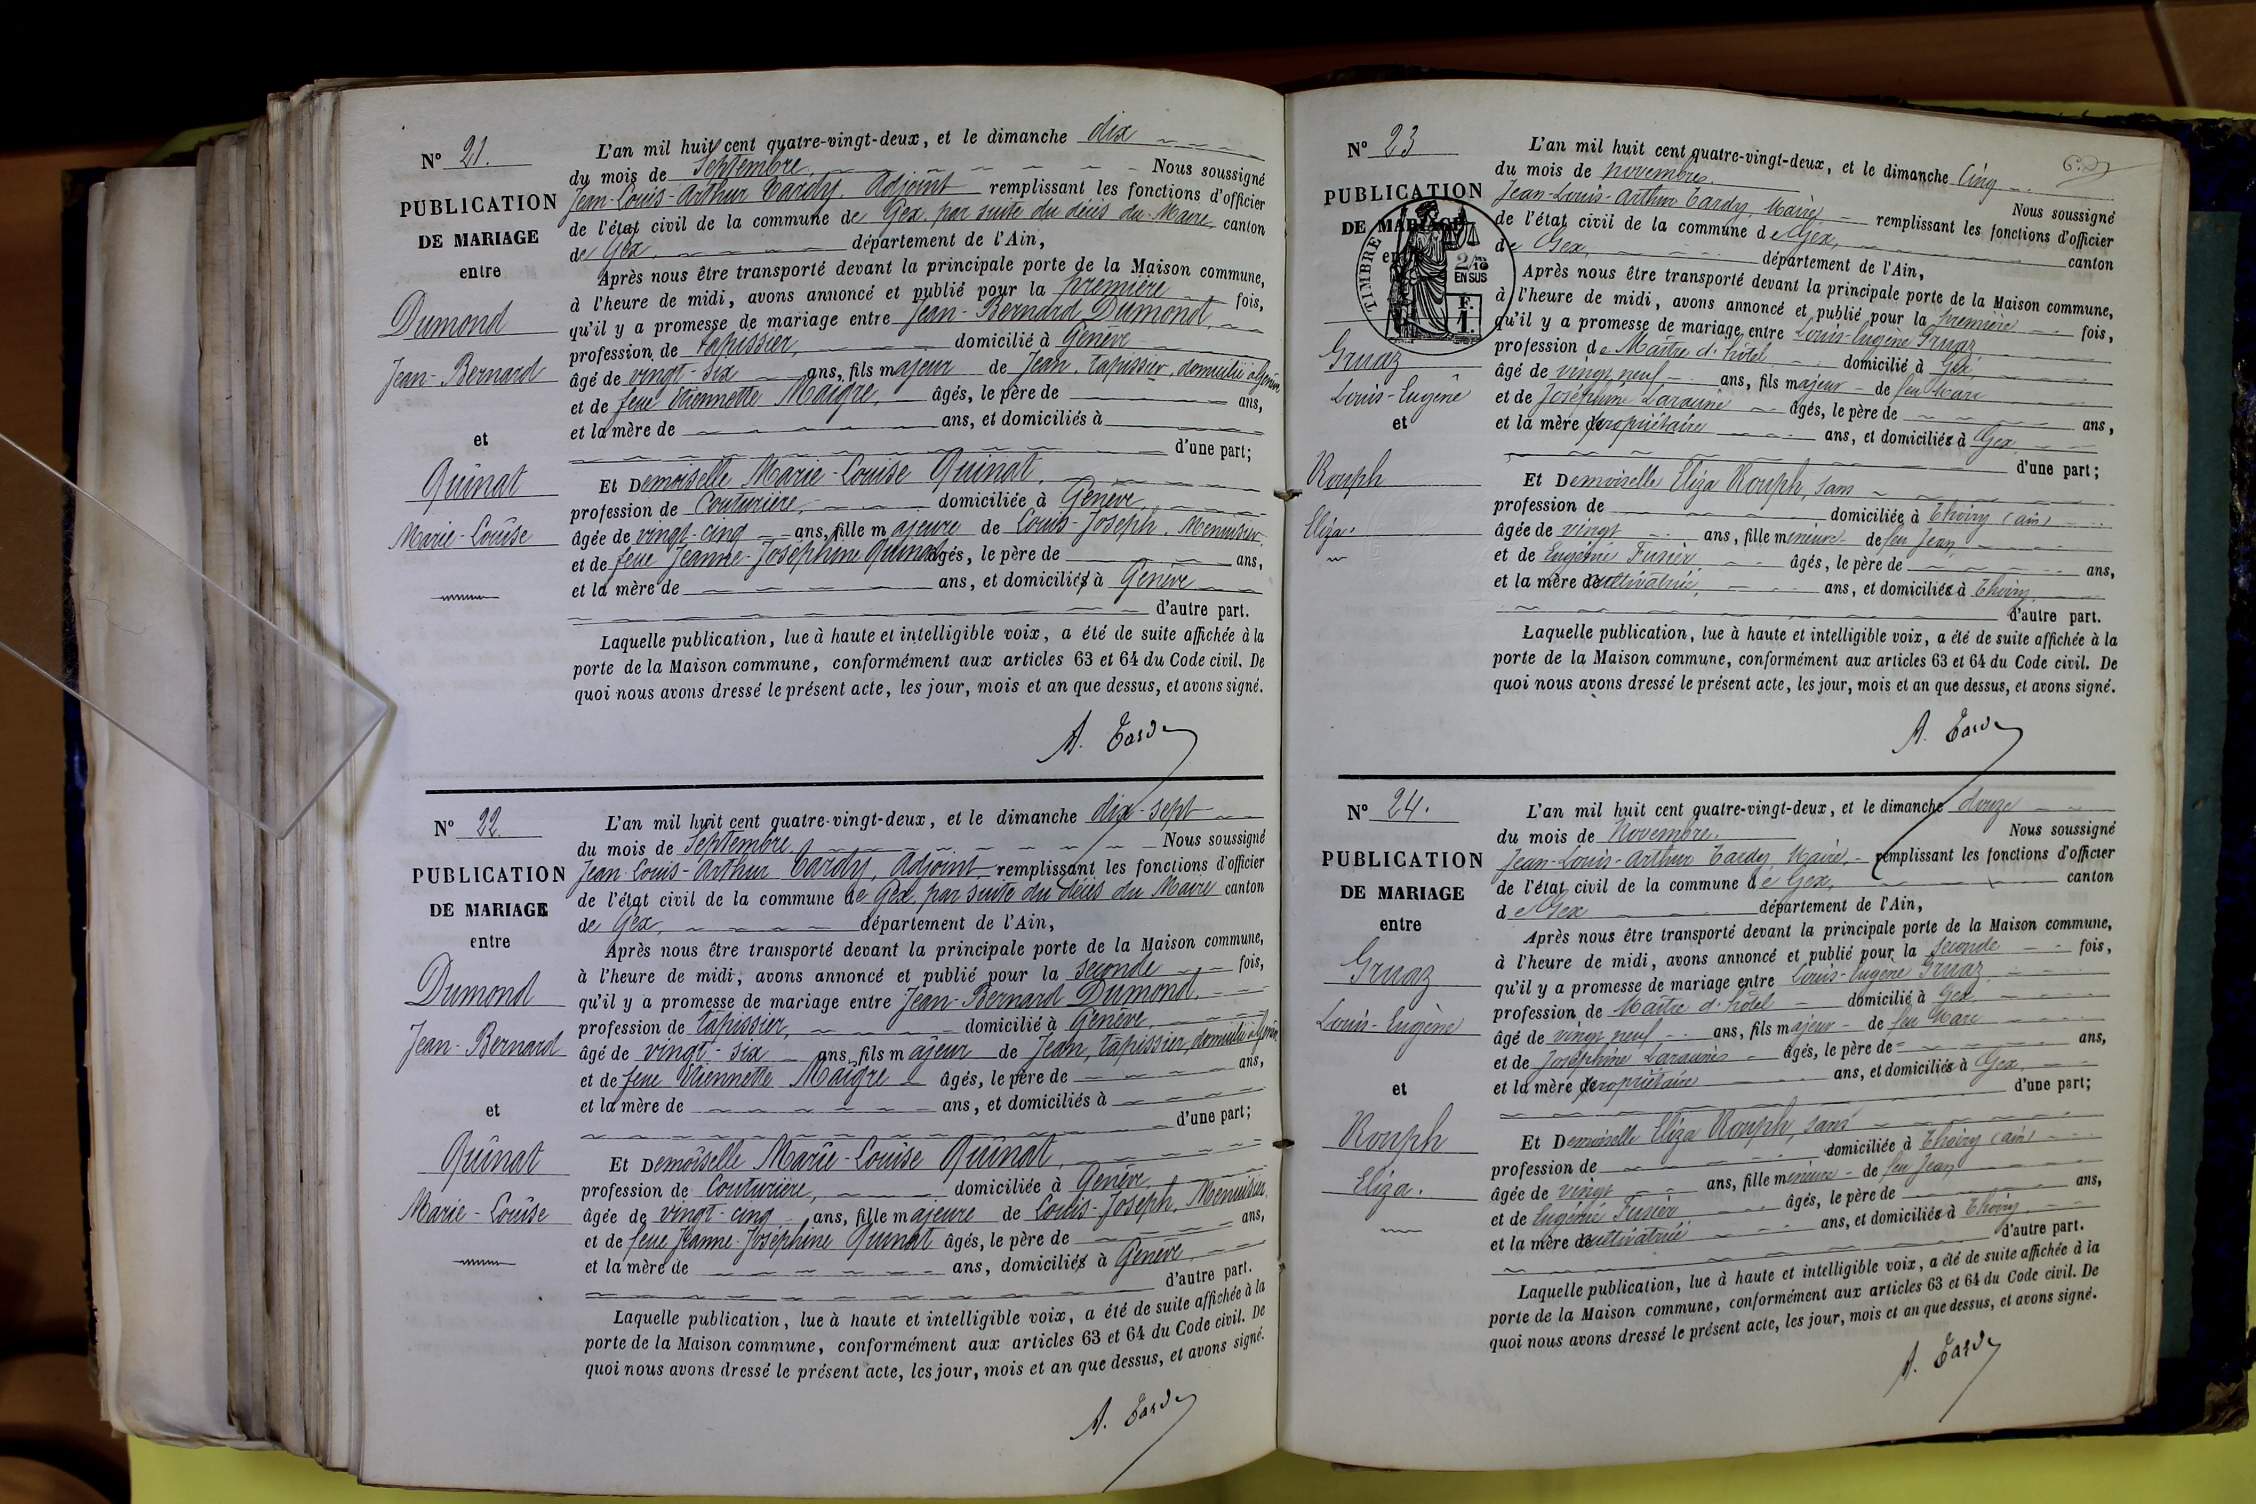 N° 21.
PUBLICATION
DE MARIAGE
entre
Dumond
Jean-Bernard
et
Quinat
Marie-Louise
L'an mil huit cent quatre-vingt-deux, et le dimanche dix
du mois de Septembre Nous soussigné
Jean-Louis-Arthur Tardy, Adjoint remplissant les fonctions d'officier
de l'état civil de la commune de Gex, par suite du décès du Maire canton
de Gex, département de l'Ain,
Après nous être transporté devant la principale porte de la Maison commune,
à l'heure de midi, avons annoncé et publié pour la première fois,
qu'il y a promesse de mariage entre Jean-Bernard Dumond,
profession de tapissier, domicilié à Genève
âgé de vingt-six ans, fils majeur de Jean, tapissier, domicilié à Genève
et de feue Etiennette Maigre, âgés, le père de ans,
et la mère de ans, et domiciliés à
d'une part;
Et Demoiselle Marie-Louise Quinat,
profession de Couturière, domiciliée à Genève,
âgée de vingt-cinq ans, fille majeure de Louis-Joseph, Menuisier,
et de feue Jeanne-Joséphine Quinat âgés, le père de ans,
et la mère de ans, et domiciliés à Genève
d'autre part.
Laquelle publication, lue à haute et intelligible voix, a été de suite affichée à la
porte de la Maison commune, conformément aux articles 63 et 64 du Code civil. De
quoi nous avons dressé le présent acte, les jour, mois et an que dessus, et avons signé.
A. Tardy
N° 22
PUBLICATION
DE MARIAGE
entre
Dumond
Jean-Bernard
et
Quinat
Marie-Louise
L'an mil huit cent quatre-vingt-deux, et le dimanche dix-sept
du mois de Septembre Nous soussigné
Jean-Louis-Arthur Tardy, Adjoint remplissant les fonctions d'officier
de l'état civil de la commune de Gex, par suite du décès du Maire canton
de Gex, département de l'Ain,
Après nous être transporté devant la principale porte de la Maison commune,
à l'heure de midi, avons annoncé et publié pour la seconde fois,
qu'il y a promesse de mariage entre Jean-Bernard Dumond,
profession de tapissier, domicilié à Genève,
âgé de vingt-six ans, fils majeur de Jean, tapissier, domicilié à Genève,
et de feue Etiennette Maigre âgés, le père de ans,
et la mère de ans, et domiciliés à
d'une part;
Et Demoiselle Marie-Louise Quinat,
profession de Couturière, domiciliée à Genève,
âgée de vingt-cinq ans, fille majeure de Louis-Joseph, Menuisier,
et de feue Jeanne-Joséphine Quinat âgés, le père de ans,
et la mère de ans, domiciliés à Genève,
d'autre part.
Laquelle publication, lue à haute et intelligible voix, a été de suite affichée à la
porte de la Maison commune, conformément aux articles 63 et 64 du Code civil. De
quoi nous avons dressé le présent acte, les jour, mois et an que dessus, et avons signé.
A. Tardy
N° 23
PUBLICATION
DE MARIAGE
entre
TIMBRE
2/10
EN SUS
F.
1.
Gruaz
Louis-Eugène
et
Rouph
Eliza.
L'an mil huit cent quatre-vingt-deux, et le dimanche Cinq
du mois de novembre. Nous soussigné
Jean-Louis-Arthur Tardy, Maire remplissant les fonctions d'officier
de l'état civil de la commune de Gex, canton
de Gex, département de l'Ain,
Après nous être transporté devant la principale porte de la Maison commune,
à l'heure de midi, avons annoncé et publié pour la première fois,
qu'il y a promesse de mariage entre Louis-Eugène Gruaz
profession de Maître d'hôtel domicilié à Gex,
âgé de vingt neuf ans, fils majeur de feu Marc
et de Joséphine âgés, le père de ans,
et la mère propriétaire ans, et domiciliés à Gex
d'une part;
Et Demoiselle Eliza Rouph, sans
profession de domiciliée à Thoiry (ain)
âgée de vingt ans, fille mineure de feu Jean
et de Eugénie Fusier âgés, le père de ans,
et la mère cultivatrice, ans, et domiciliés à Thoiry,
d'autre part.
Laquelle publication, lue à haute et intelligible voix, a été de suite affichée à la
porte de la Maison commune, conformément aux articles 63 et 64 du Code civil. De
quoi nous avons dressé le présent acte, les jour, mois et an que dessus, et avons signé.
A. Tardy
N° 24.
PUBLICATION
DE MARIAGE
entre
Gruaz
Louis-Eugène
et
Rouph
Eliza.
L'an mil huit cent quatre-vingt-deux, et le dimanche douze
du mois de Novembre. Nous soussigné
Jean-Louis-Arthur Tardy, Maire, remplissant les fonctions d'officier
de l'état civil de la commune de Gex, canton
de Gex département de l'Ain,
Après nous être transporté devant la principale porte de la Maison commune,
à l'heure de midi, avons annoncé et publié pour la seconde fois,
qu'il y a promesse de mariage entre Louis-Eugène Gruaz
profession de Maître d'hôtel domicilié à Gex
âgé de vingt neuf, ans, fils majeur de feu Marc
et de Joséphine âgés, le père de ans,
et la mère propriétaire ans, et domiciliés à Gex,
d'une part;
Et Demoiselle Eliza Rouph, sans
profession de domiciliée à Thoiry (ain)
âgée de vingt ans, fille mineure de feu Jean
et de Eugénie Fusier âgés, le père de ans,
et la mère cultivatrice ans, et domiciliés à Thoiry,
d'autre part.
Laquelle publication, lue à haute et intelligible voix, a été de suite affichée à la
porte de la Maison commune, conformément aux articles 63 et 64 du Code civil. De
quoi nous avons dressé le présent acte, les jour, mois et an que dessus, et avons signé.
A. Tardy